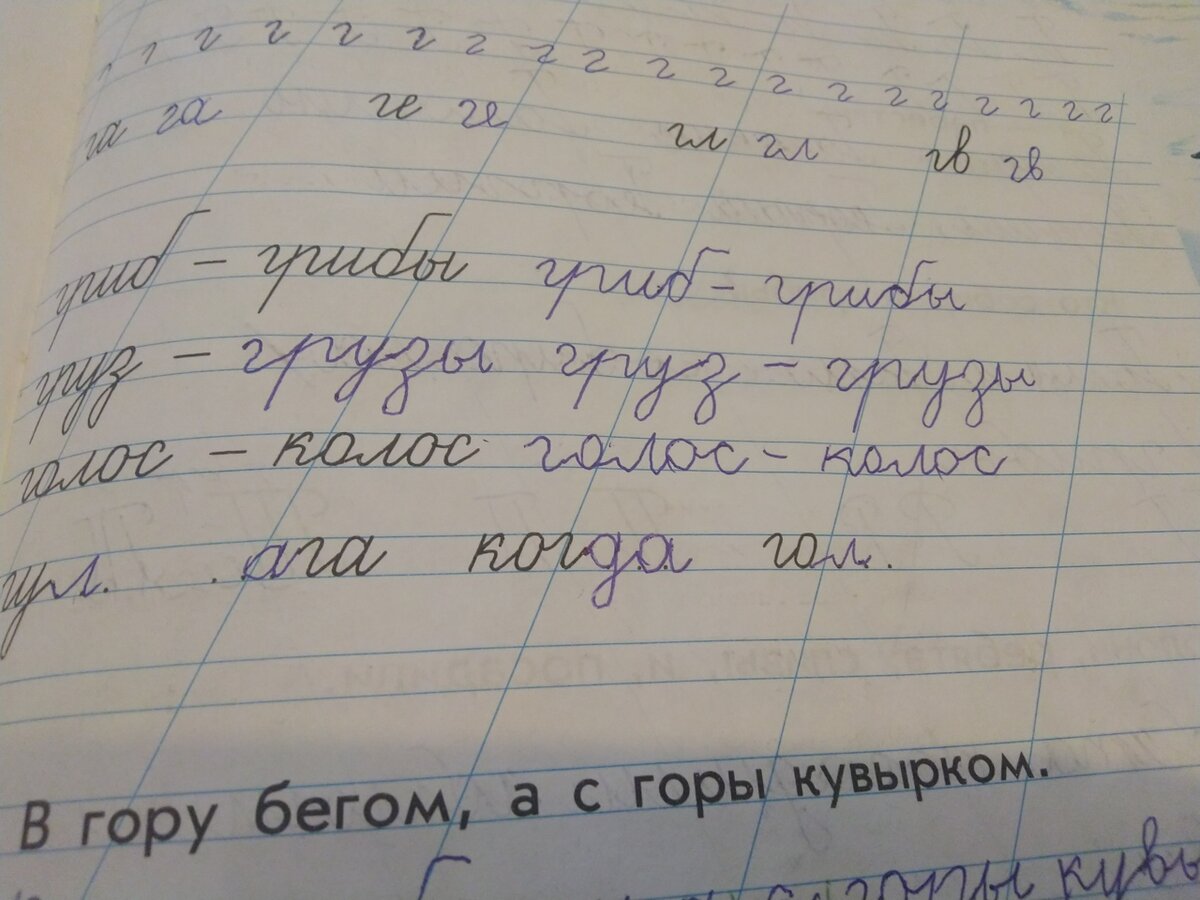 г г г г г г г г г г г г г г г г г г г
га га ге ге гл гл гв гв
гриб – грибы гриб – грибы
груз – грузы груз – грузы
голос – колос голос – колос
гул. .ага когда гол.
В гору бегом, а с горы кувырком.
с горы кувы